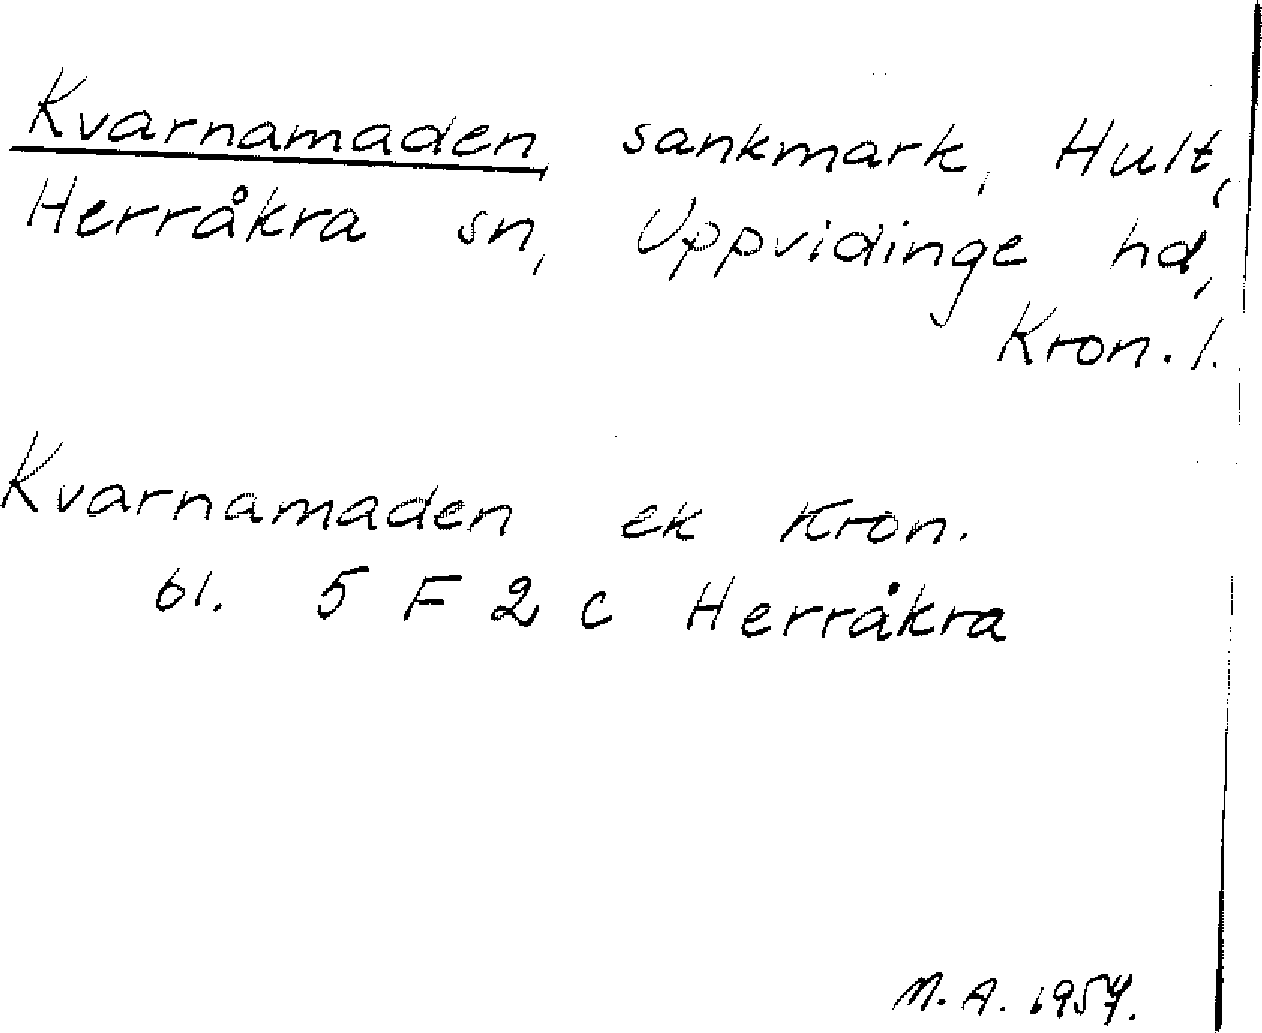 Kvarnamaden, sankmark, Hult,
Herråkra sn, Uppvidinge hd,
Kron. l.
Kvarnamaden ek Kron.
bl. 5 F 2 c Herråkra
M. A. 1957.